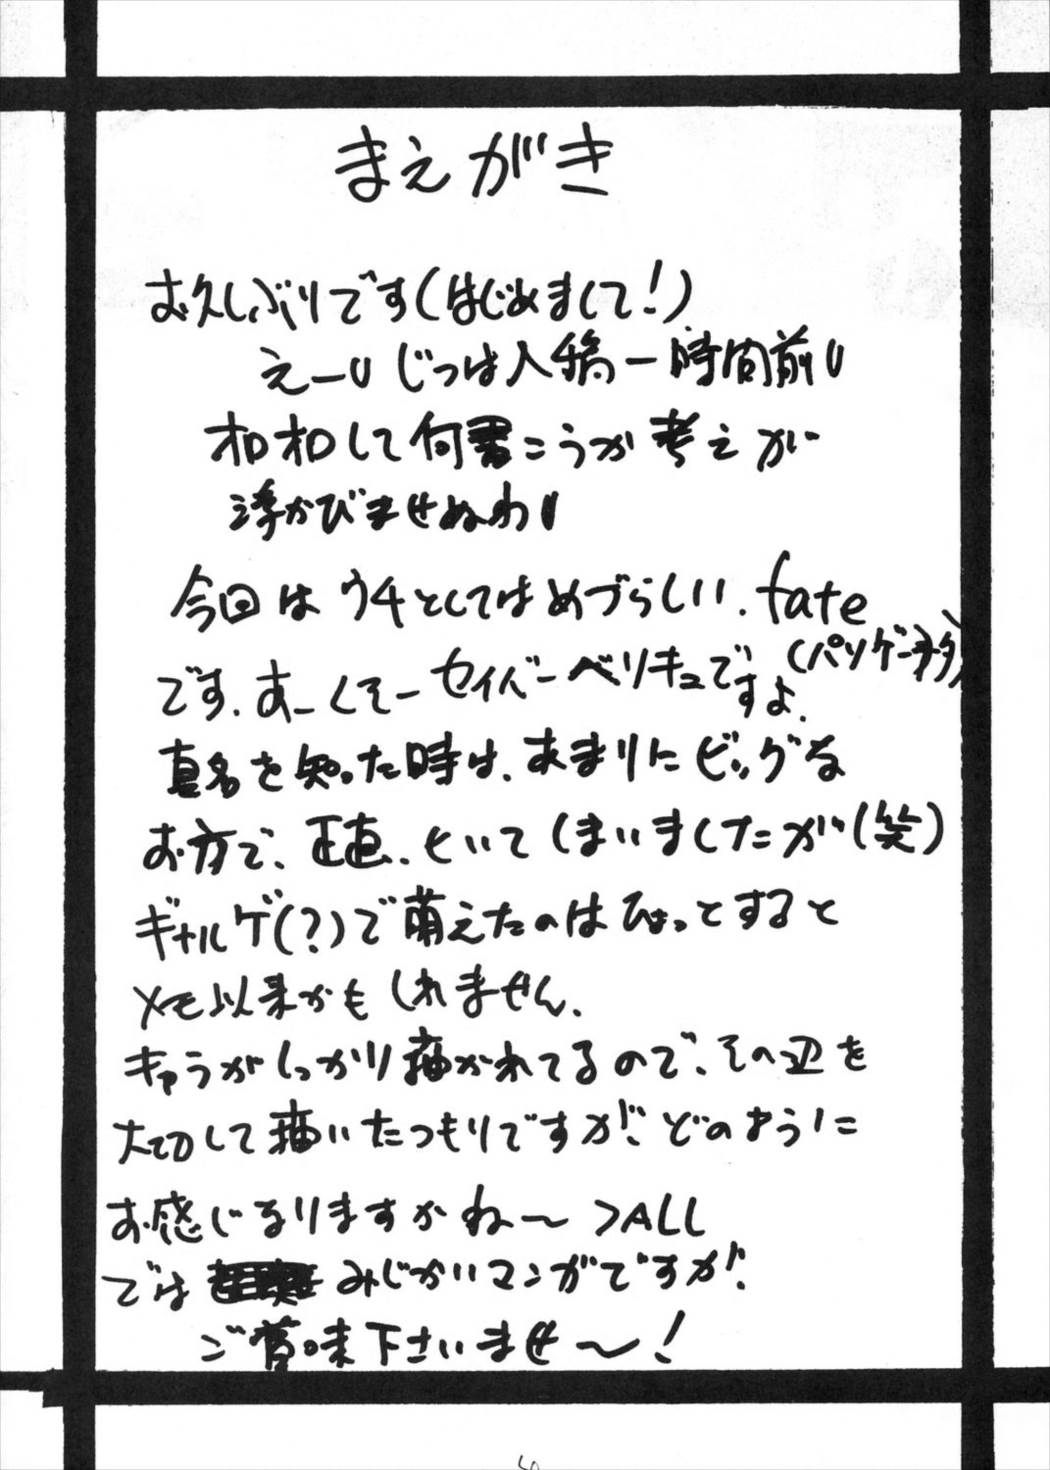 まえがき
お久しぶりです(はじめまして!)
えー じつは入稿一時間前
オロオロして何書こうか考えが
浮かびませぬわ
今回はウチとしてはめづらしい、fate
(パソゲーネタ)
です、あーくそーセイバーベリキュですよ、
真名を知った時は、あまりにビッグな
お方で、正直、といてしまいましたが(笑)
ギャルゲ(?)で萌えたのはひょっとすると
メモ以来かもしれません、
キャラがしっかり描かれてるので、その辺を
大切して描いたつもりですが、どのように
お感じなりますかね〜 >ALL
では みじかいマンガですが、
ご賞味下さいませ〜!